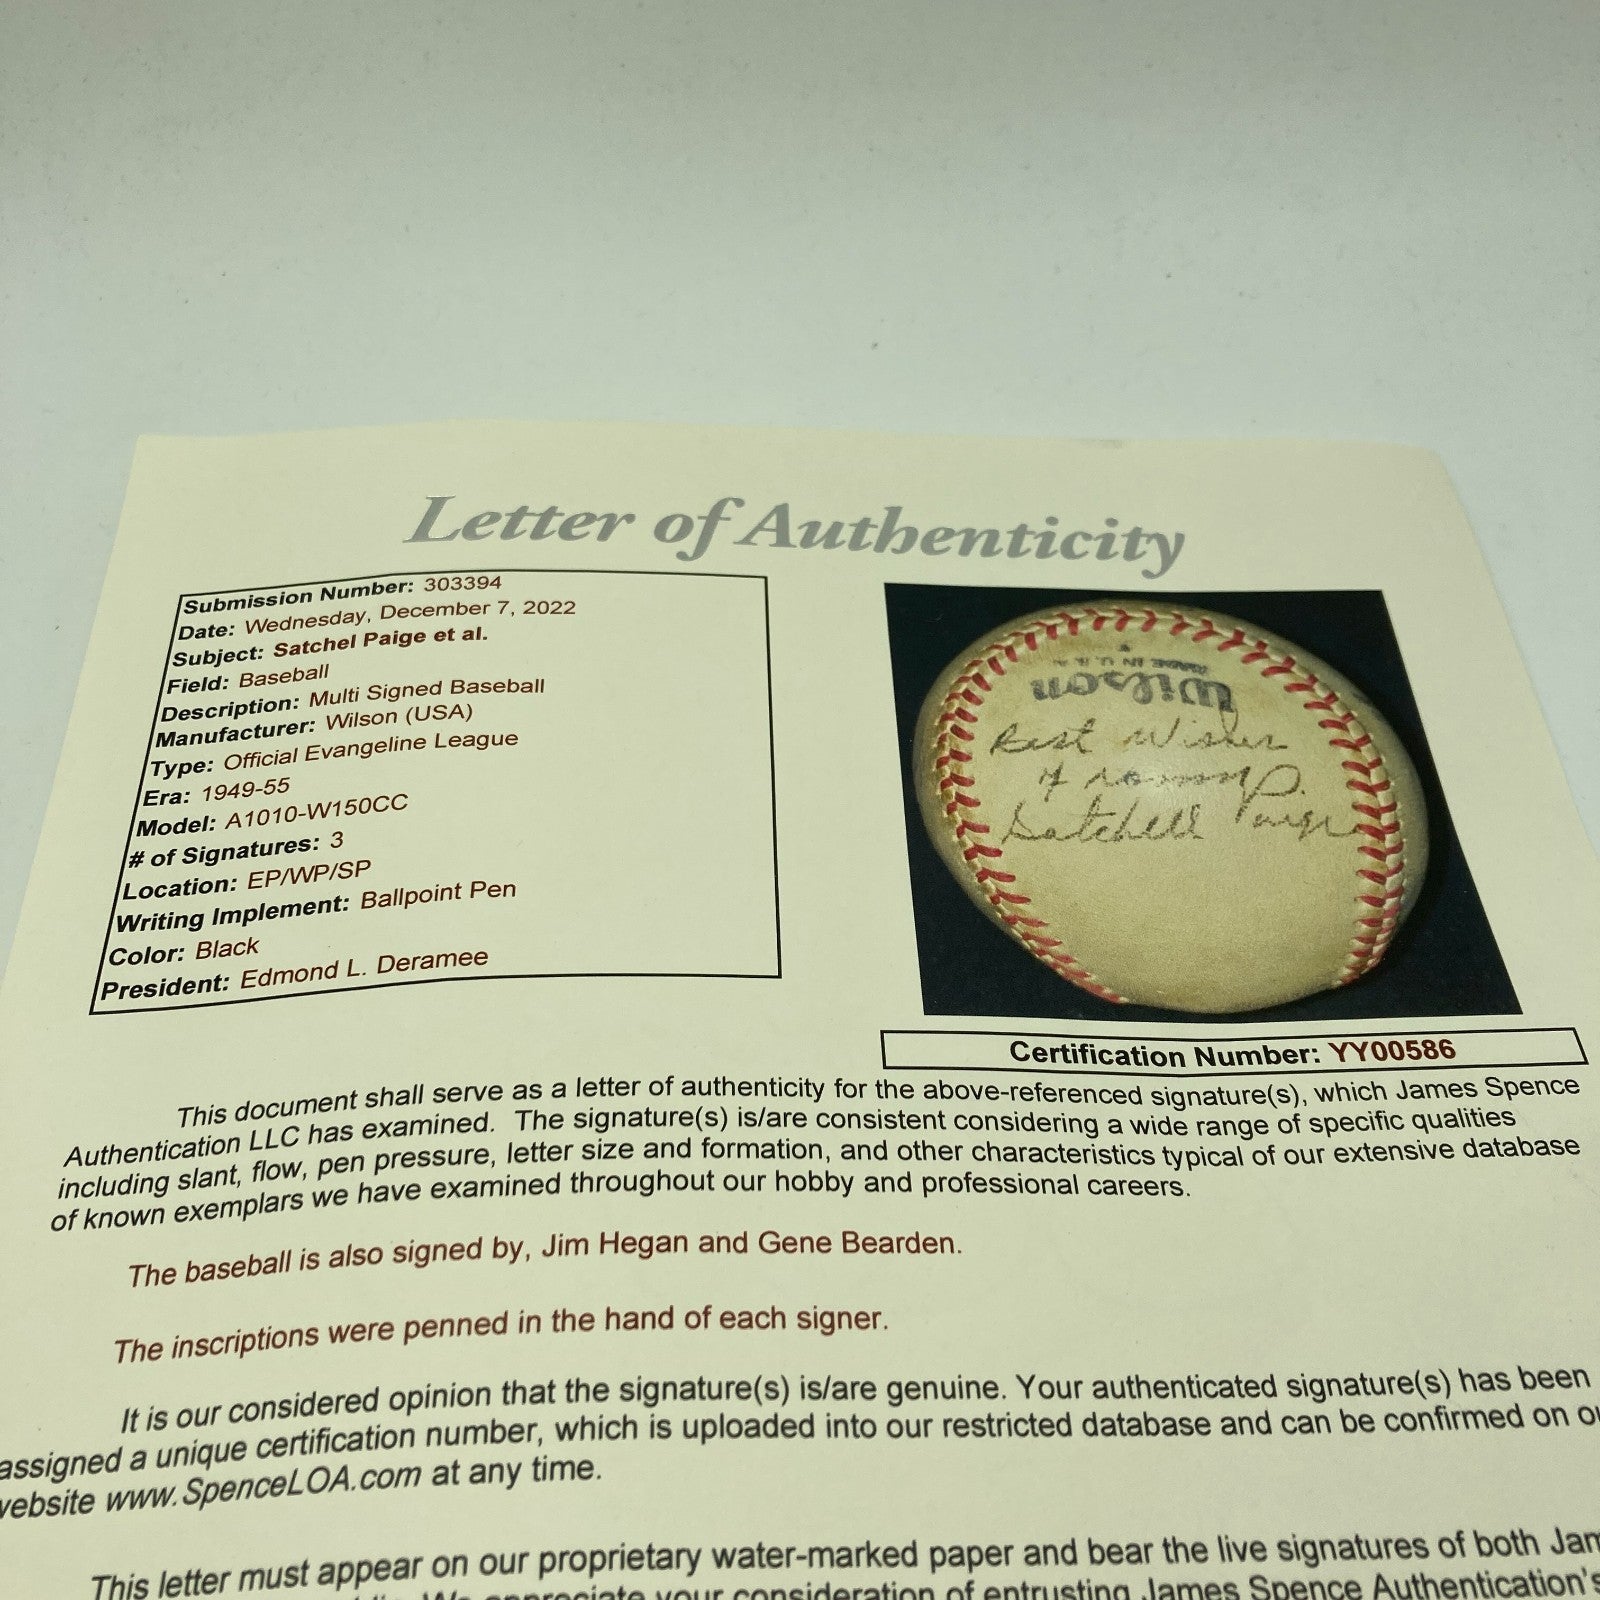 Letter of Authenticity
Submission Number: 303394
Date: Wednesday, December 7, 2022
Subject: Satchel Paige et al.
Field: Baseball
Description: Multi Signed Baseball
Manufacturer: Wilson (USA)
Type: Official Evangeline League
Era: 1949-55
Model: A1010-W150CC
# of Signatures: 3
Location: EP/WP/SP
Writing Implement: Ballpoint Pen
Color: Black
President: Edmond L. Deramee
MADE IN U.S.A.
Wilson
Best Wishes
from
Satchell Paige
Certification Number: YY00586
This document shall serve as a letter of authenticity for the above-referenced signature(s), which James Spence
Authentication LLC has examined. The signature(s) is/are consistent considering a wide range of specific qualities
including slant, flow, pen pressure, letter size and formation, and other characteristics typical of our extensive database
of known exemplars we have examined throughout our hobby and professional careers.
The baseball is also signed by, Jim Hegan and Gene Bearden.
The inscriptions were penned in the hand of each signer.
It is our considered opinion that the signature(s) is/are genuine. Your authenticated signature(s) has been
assigned a unique certification number, which is uploaded into our restricted database and can be confirmed on ou
website www.SpenceLOA.com at any time.
This letter must appear on our proprietary water-marked paper and bear the live signatures of both Jam
We appreciate your consideration of entrusting James Spence Authentication's